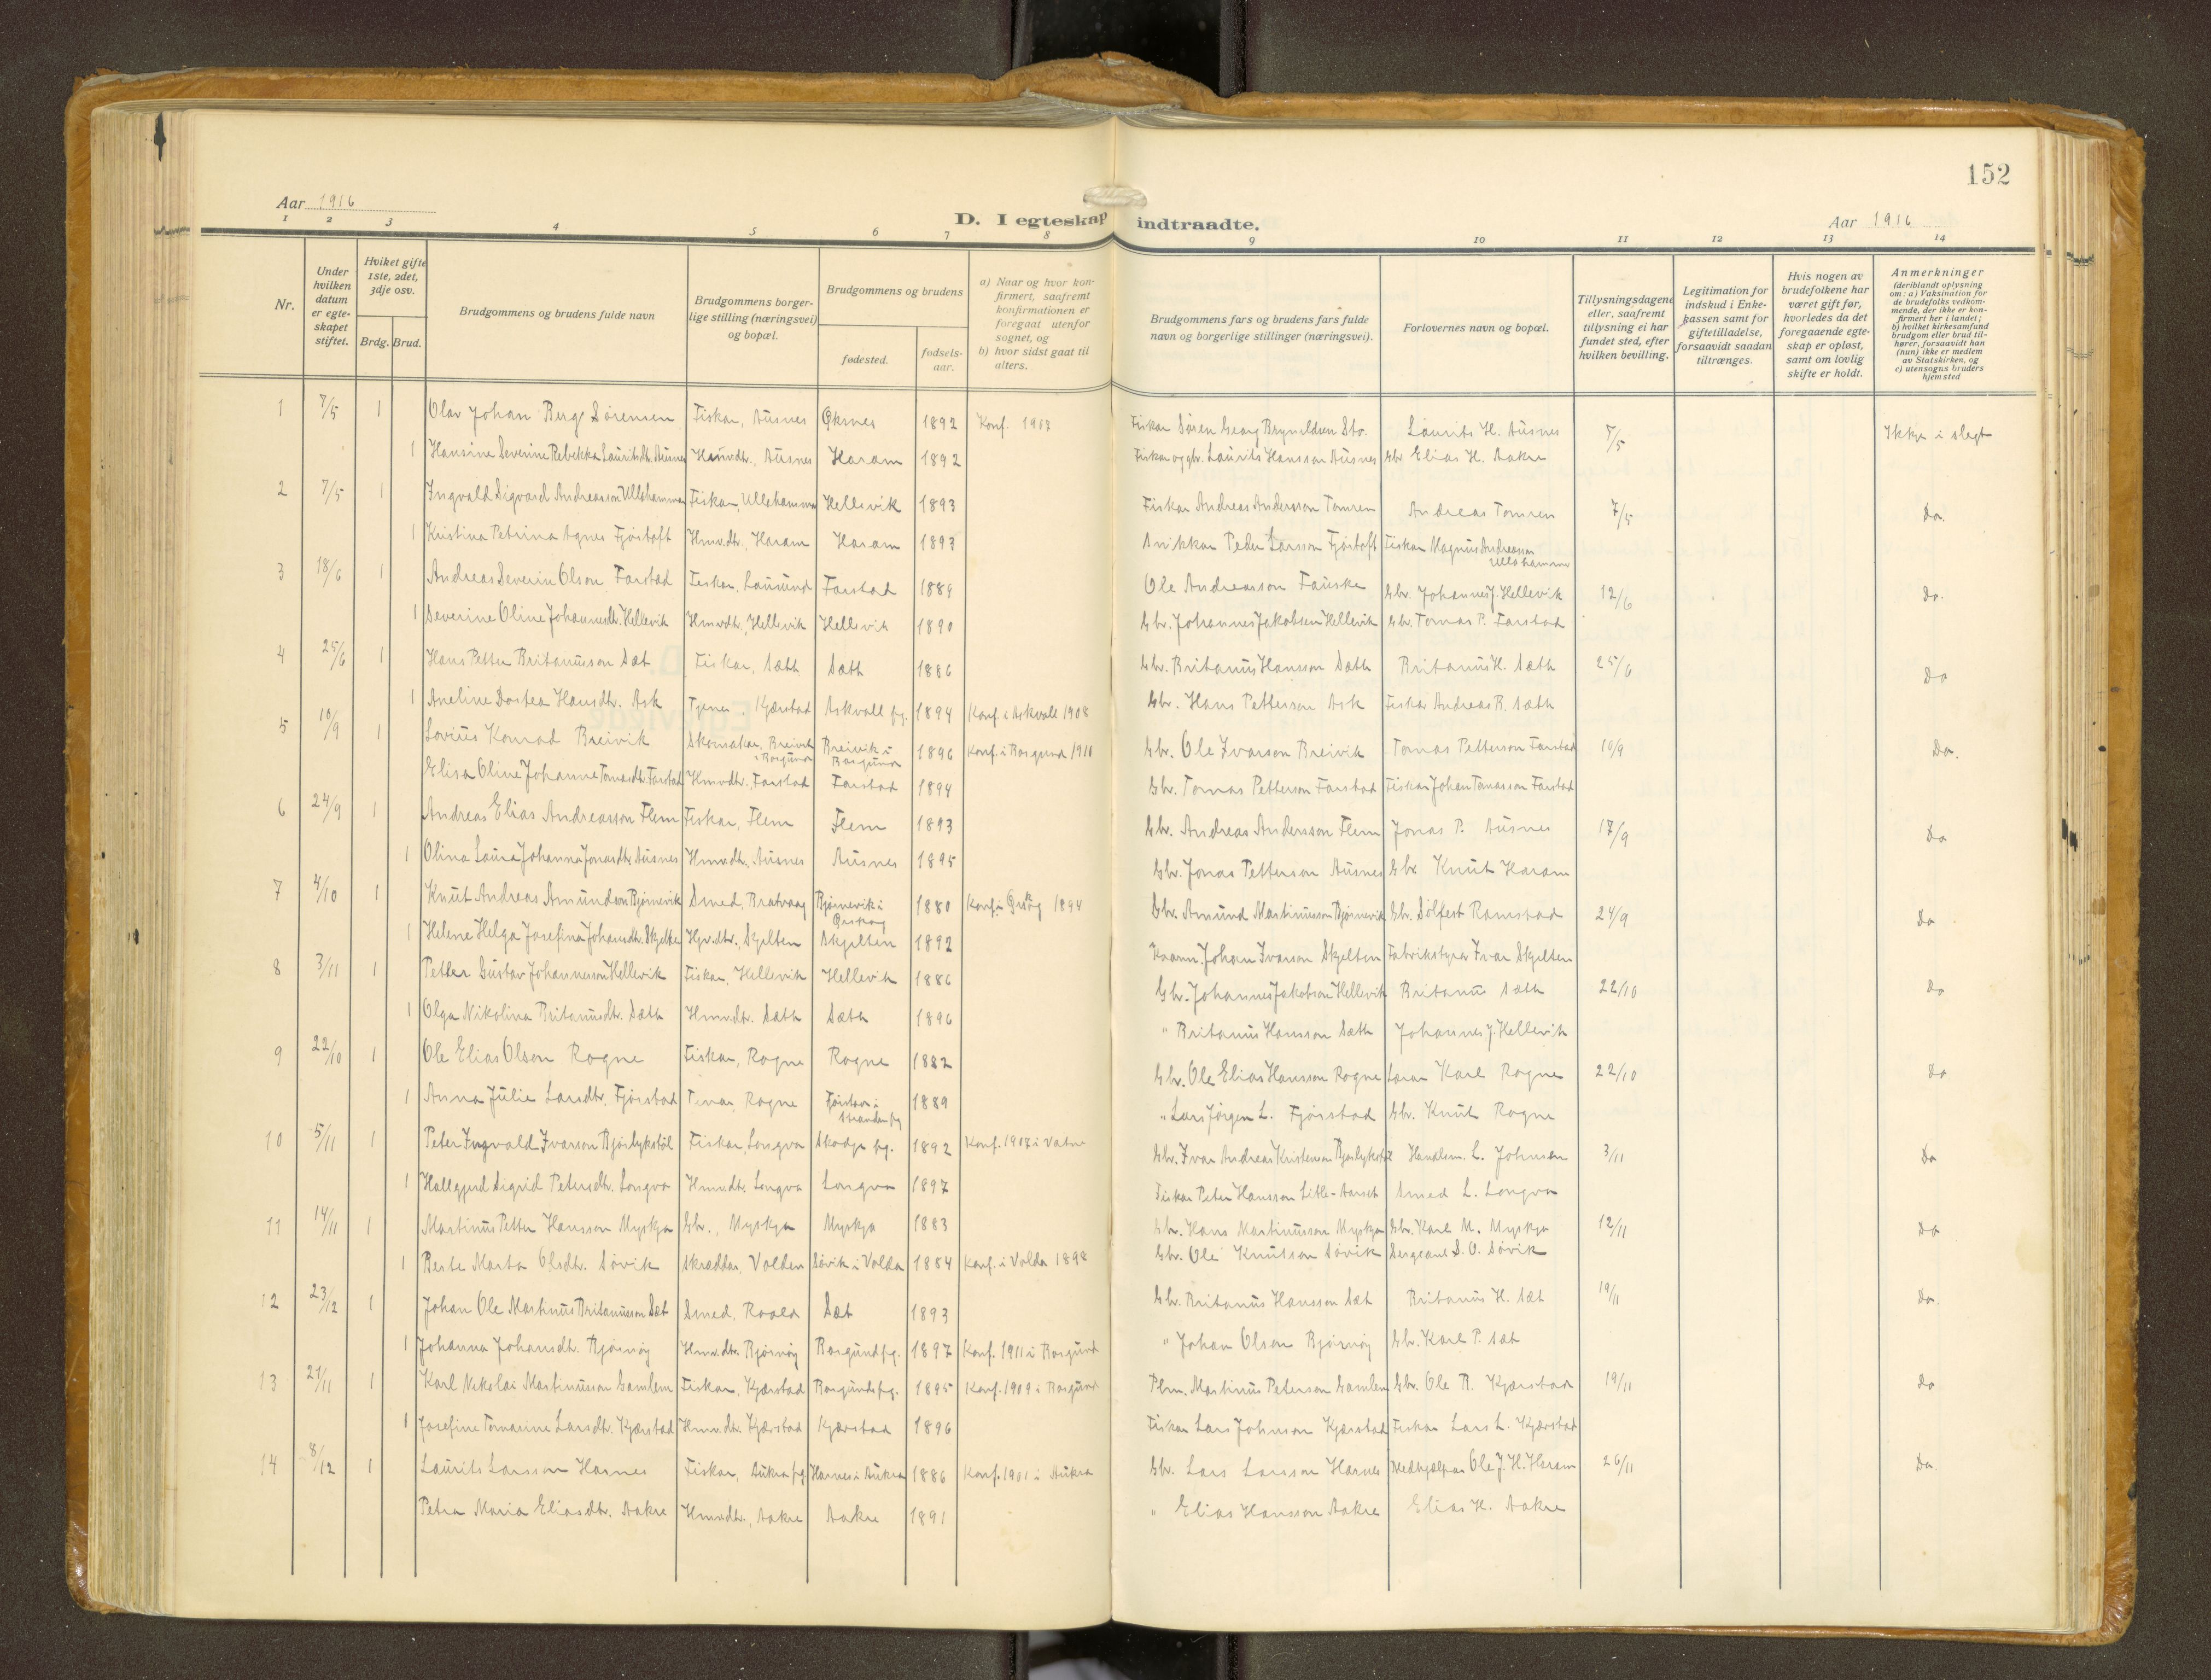 152
Aar 1916
D. I egteskap indtraadte.
Aar 1916
1 2 3 4 5 6 7 8 9 10 11 12 13 14
Nr.
Under hvilken datum er egteskapet stiftet.
Hviket gifte 1ste, 2det, 3dje osv.
Brdg. Brud.
Brudgommens og brudens fulde navn
Brudgommens borgerlige stilling (næringsvei) og bopæl.
Brudgommens og brudens
fødested.
fødselsaar.
a) Naar og hvor konfirmert, saafremt konfirmationen er foregaat utenfor sognet, og
b) hvor sidst gaat til alters.
Brudgommens fars og brudens fars fulde navn og borgerlige stillinger (næringsvei).
Forlovernes navn og bopæl.
Tillysningsdagene eller, saafremt tillysning ei har fundet sted, efter hvilken bevilling.
Legitimation for indskud i Enkekassen samt for giftetilladelse, forsaavidt saadan tiltrænges.
Hvis nogen av brudefolkene har været gift før, hvorledes da det foregaaende egteskap er opløst, samt om lovlig skifte er holdt.
Anmerkninger (deriblandt oplysning om: a) Vaksination for de brudefolks vedkommende, der ikke er konfirmert her i landet; b) hvilket kirkesamfund brudgom eller brud tilhører, forsaavidt han (hun) ikke er medlem av Statskirken, og c) utensogns bruders hjemsted
1 7/5 1 Olav Johan Berg Sørensen Fiskar, Ausnes Øksnes 1892 Konf. 1907 Fiskar Søren Georg Brynildsen Sto. Laurits H. Ausnes 7/5 Ikkje i slegt
1 Hansine Severine Rebekka Lauritsdtr. Ausnes Hmvdtr., Ausnes Haram 1892 Fiskar og gbr. Laurits Hansson Ausnes Gbr. Elias H. Aakre
2 7/5 1 Ingvald Sigvard Andreasson Ullahammer Fiskar, Ullahammer Hellevik 1893 Fiskar Andreas Andersson Tomren Andreas Tomren 7/5 Do.
1 Kristina Petrina Agnes Fjørtoft Hmvdtr. Haram Haram 1893 Snikkar Peder Larsson Fjørtoft Fiskar Magnus Andreasson Ullahammer
3 18/6 1 Andreas Severin Olson Farstad Fiskar, Lausund Farstad 1889 Ole Andreasson Fauske Gbr. Johannes J. Hellevik 12/6 Do.
1 Severine Oline Johannesdtr. Hellevik Hmvdtr., Hellevik Hellevik 1890 Gbr. Johannes Jakobsen Hellevik Gbr. Tomas P. Farstad
4 25/6 1 Hans Petter Britanusson Sæt Fiskar, Sæth Sæth 1886 Gbr. Britanus Hansson Sæth Britanus H. Sæth 25/6 Do
1 Aneline Dortea Hansdtr. Ask Tjener, Kjærstad Askvoll pg. 1894 Konf. i Askvoll 1908 Gbr. Hans Petterson Ask Fiskar Andreas B. Sæth
5 10/9 1 Lovius Konrad Breivik Skomakar, Breivik i Borgund Breivik i Borgund 1896 Konf. i Borgund 1911 Gbr. Ole Ivarson Breivik Tomas Petterson Farstad 10/9 Do.
Elisa Oline Johanne Tomasdtr. Farstad Hmvdtr. Farstad Farstad 1894 Gbr. Tomas Petterson Farstad Fiskar Johan Tomasson Farstad
6 24/9 1 Andreas Elias Andreasson Flem Fiskar, Flem Flem 1893 Gbr. Andreas Andersson Flem Jonas P. Ausnes 17/9 Do
1 Olina Laura Johanna Jonasdtr. Ausnes Hmvdtr. Ausnes Ausnes 1895 Gbr. Jonas Petterson Ausnes Gbr. Knut Haram
7 4/10 1 Knut Andreas Amundson Bjørnevik Smed, Bratvaag Bjørnevik i Ørskog 1880 Konf. i Ørskog 1894 Gbr. Amund Martinusson Bjørnevik Gbr. Sølfest Ramstad 24/9 Do
1 Helene Helga Josefina Johansdtr. Skjelten Hmv.dtr., Skjelten Skjelten 1892 Kaarm. Johan Ivarson Skjelten Fabrikstyrar Ivar Skjelten
8 3/11 1 Petter Gustav Johannesson Hellevik Fiskar, Hellevik Hellevik 1886 Gbr. Johannes Jakobson Hellevik Britanus Sæth 22/10 Do
1 Olga Nikolina Britanusdtr. Sæth Hmvdtr. Sæth Sæth 1896 " Britanus Hansson Sæth Johannes J. Hellevik
9 22/10 1 Ole Elias Olson Rogne Fiskar, Rogne Rogne 1882 Gbr. Ole Elias Hansson Rogne Lærar Karl Rogne 22/10 Do
1 Anna Julie Larsdtr. Fjørstad Tenar, Rogne Fjørstad i Stranden pg 1889 " Lars Jørgen L. Fjørstad Gbr. Knut Rogne
10 5/11 1 Peter Ingvald Ivarson Bjørlykstøl Fiskar, Longva Skodje pg. 1892 Konf. 1907 i Vatne Gbr. Ivar Andreas Kristenson Bjørlykstøl Handlsm. L. Johnsen 3/11 Do
1 Hallgjerd Sigrid Petersdtr. Longva Hmvdtr. Longva Longva 1897 Fiskar Peter Hansson Litle-Aarset Smed L. Longva
11 14/11 1 Martinus Petter Hansson Myskja Gbr., Myskja Myskja 1883 Gbr. Hans Martinusson Myskja Gbr. Karl M. Myskja 12/11 Do
1 Berte Marta Olsdtr. Søvik Skræddar, Volden Søvik i Volda 1884 Konf. i Volda 1898 Gbr. Ole Knutson Søvik Sergeant S. O. Søvik
12 23/12 1 Johan Ole Martinus Britanusson Sæt Smed, Roald Sæt 1893 Gbr. Britanus Hansson Sæt Britanus H. Sæt 19/11 Do.
1 Johanna Johansdtr. Bjørnøy Hmv.dtr. Bjørnøy Borgund pg. 1897 Konf. 1911 i Borgund " Johan Olson Bjørnøy Gbr. Karl P. Sæt
13 21/11 1 Karl Nikolai Martinusson Gamlem Fiskar, Kjærstad Borgund pg. 1895 Konf. 1909 i Borgund Plm. Martinus Peterson Gamlem Gbr. Ole R. Kjærstad 19/11 Do
1 Josefine Tomasine Larsdtr. Kjærstad Hmv.dtr. Kjærstad Kjærstad 1896 Fiskar Lars Johnson Kjærstad Fiskar Lars L. Kjærstad
14 8/12 1 Laurits Larsson Harnes Fiskar, Aukra pg. Harnes i Aukra 1886 Konf. 1901 i Aukra Gbr. Lars Larsson Harnes Medhjælpar Ole J. H. Haram 26/11 Do.
Petra Maria Eliasdtr. Aakre Hmvdtr., Aakre Aakre 1891 " Elias Hansson Aakre Elias H. Aakre